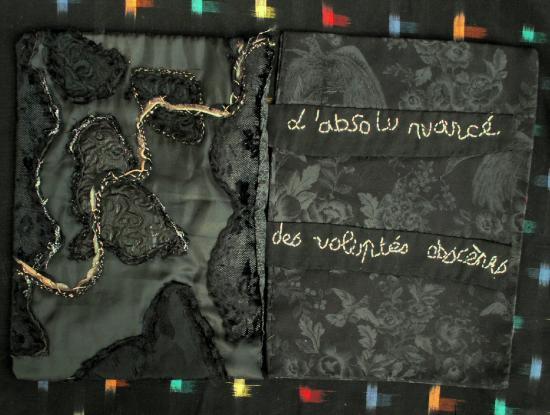 L'absolu nuancé
des voluptés obscènes